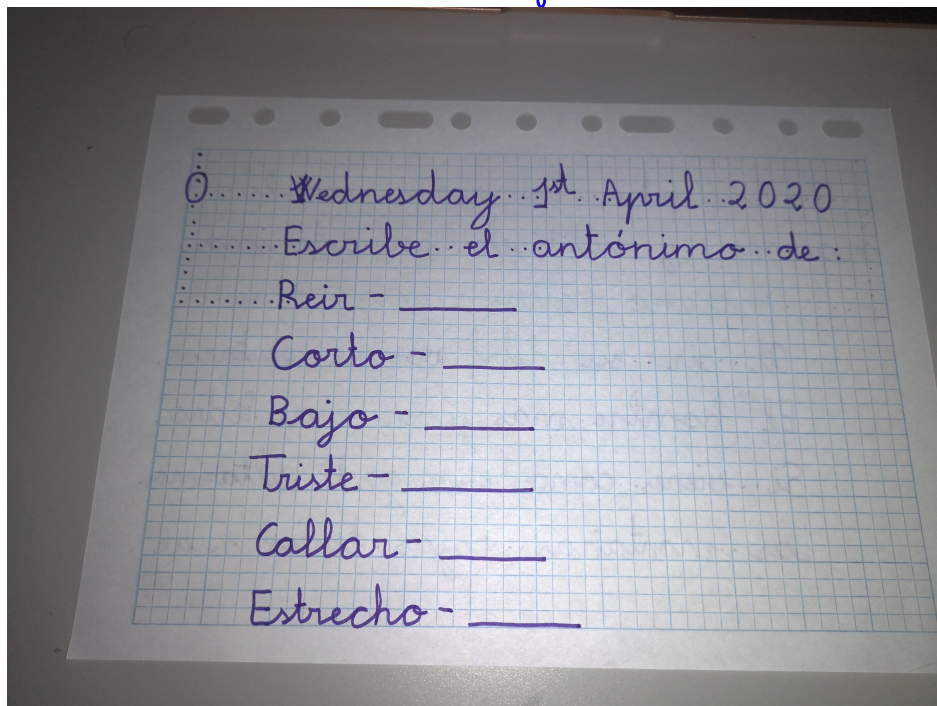 Wednesday 1st April 2020
Escribe el antónimo de:
Reir - ______
Corto - ______
Bajo - ______
Triste - ______
Callar - ______
Estrecho - ______